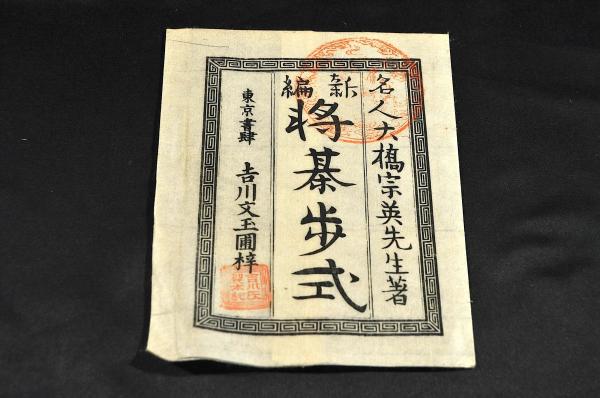 名人大橋宗英先生著
新編
将棊歩式
東京書肆 吉川文玉圃梓